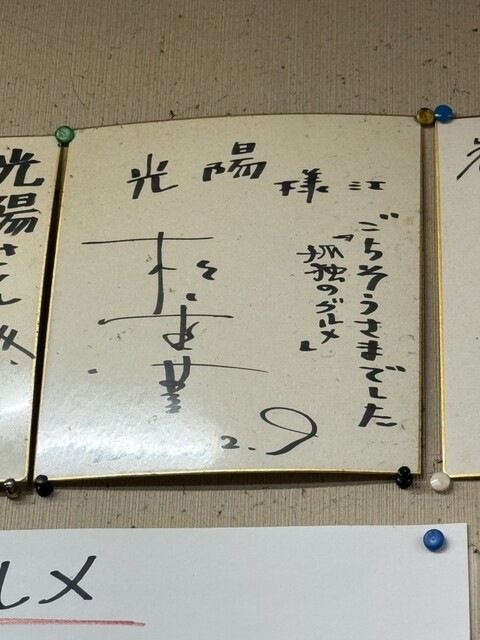 光陽様江
ごちそうさまでした
『孤独のグルメ』
松重豊
2.9
光陽さん江
ルメ